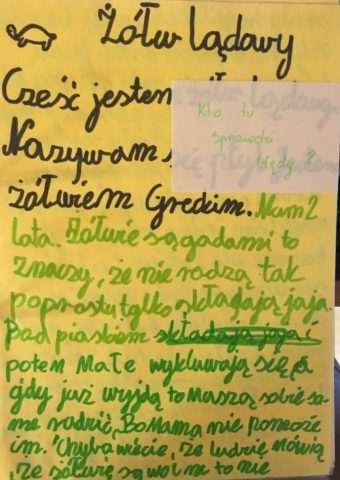 Żółw lądowy
Cześć jestem
Nazywam
żółwiem Greckim. Mam 2
lata. Żółwie są gadami to
znaczy, że nie rodzą tak
poprostu tylko składają jaja.
Pod piaskiem składają jaja i
potem Małe wykluwają się, a
gdy już wyjdą to Muszą sobie sa-
me radzić, Bo Mama nie pomoże
im. Chyba wiecie, że ludzie mówią
że żółwie są wolne to nie
Kto tu
sprawdzi
błędy ?